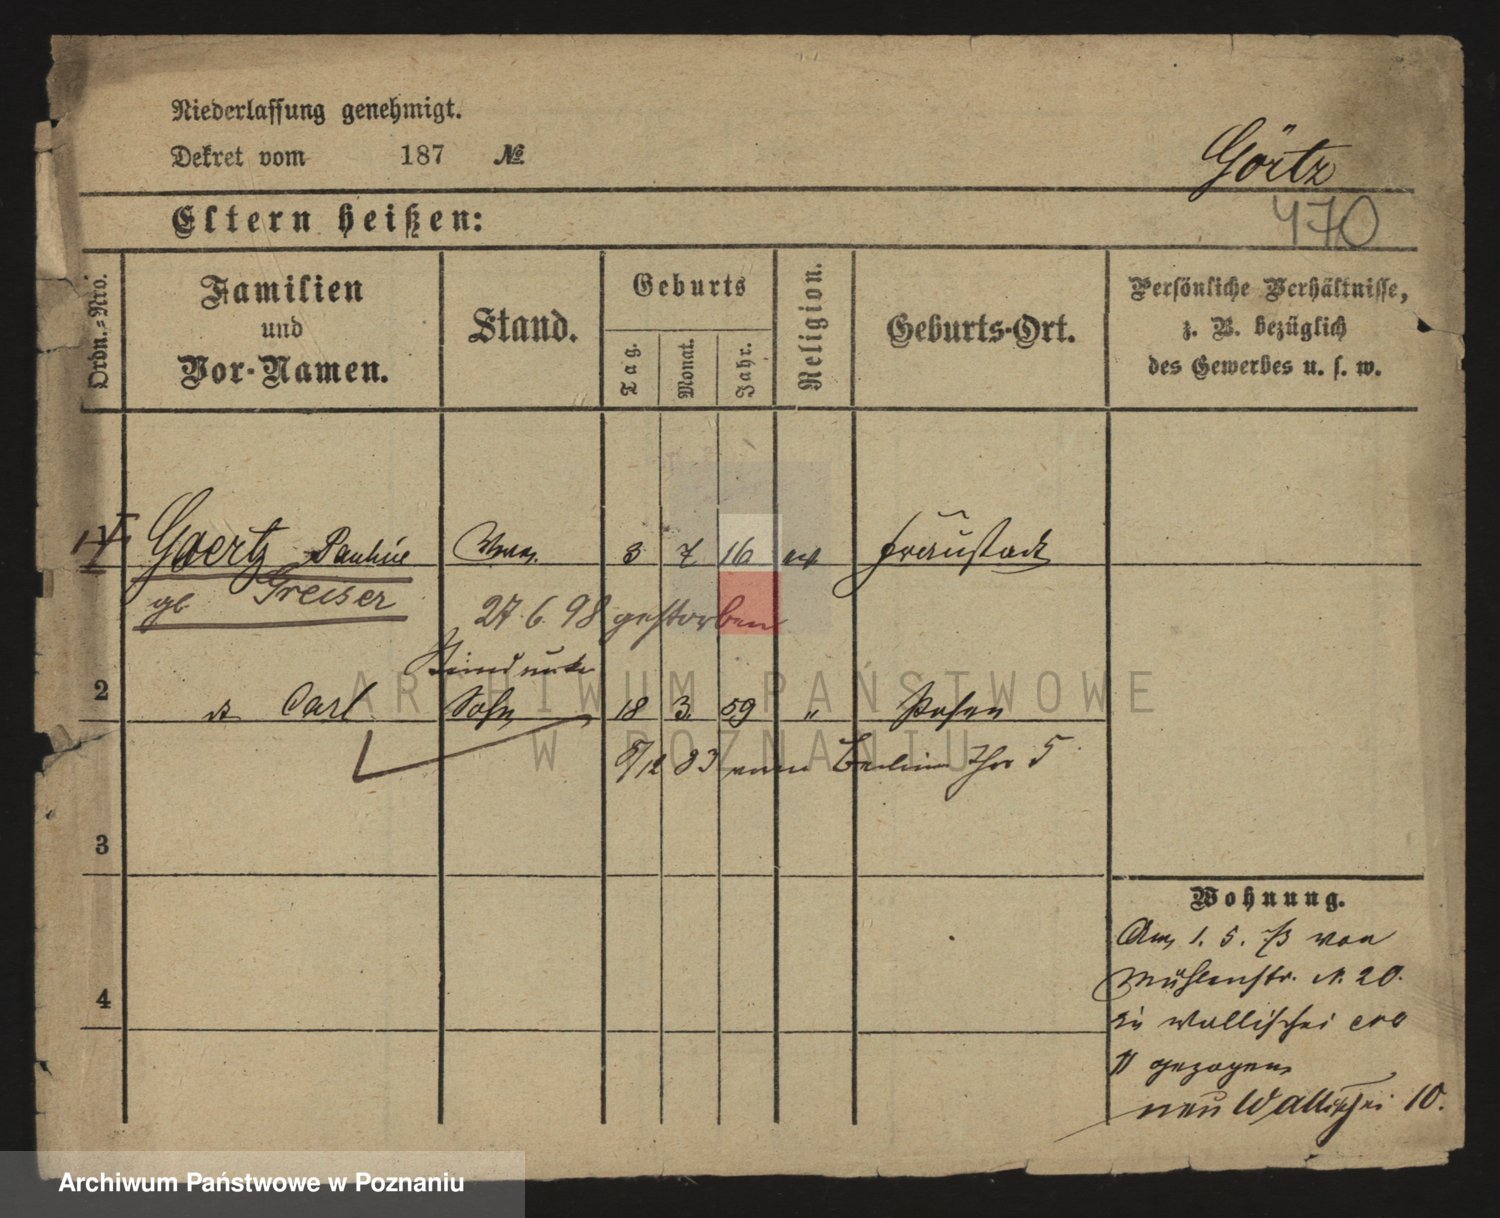 Niederlassung genehmigt.
Dekret vom 187 №
Görtz
Eltern heißen:
470
Ordn.-Nro.
Familien
und
Vor-Namen.
Stand.
Geburts
Tag.
Monat.
Jahr.
Religion.
Geburts-Ort.
Persönliche Verhältnisse,
z. B. bezüglich
des Gewerbes u. s. w.
1 Goertz Pauline 3 7 16 ev Fraustadt
gb Greiser 27.6.98 gestorben
2 Carl Sohn 18 3. 59 " Posen
8/12 83 nach Berlin 5
3
4
Wohnung.
Am 1. 5. von
Mühlenstr. N. 20.
in Wallischei
gezogen
neu Wallischei 10.
ARCHIWUM PAŃSTWOWE
W POZNANIU
Archiwum Państwowe w Poznaniu